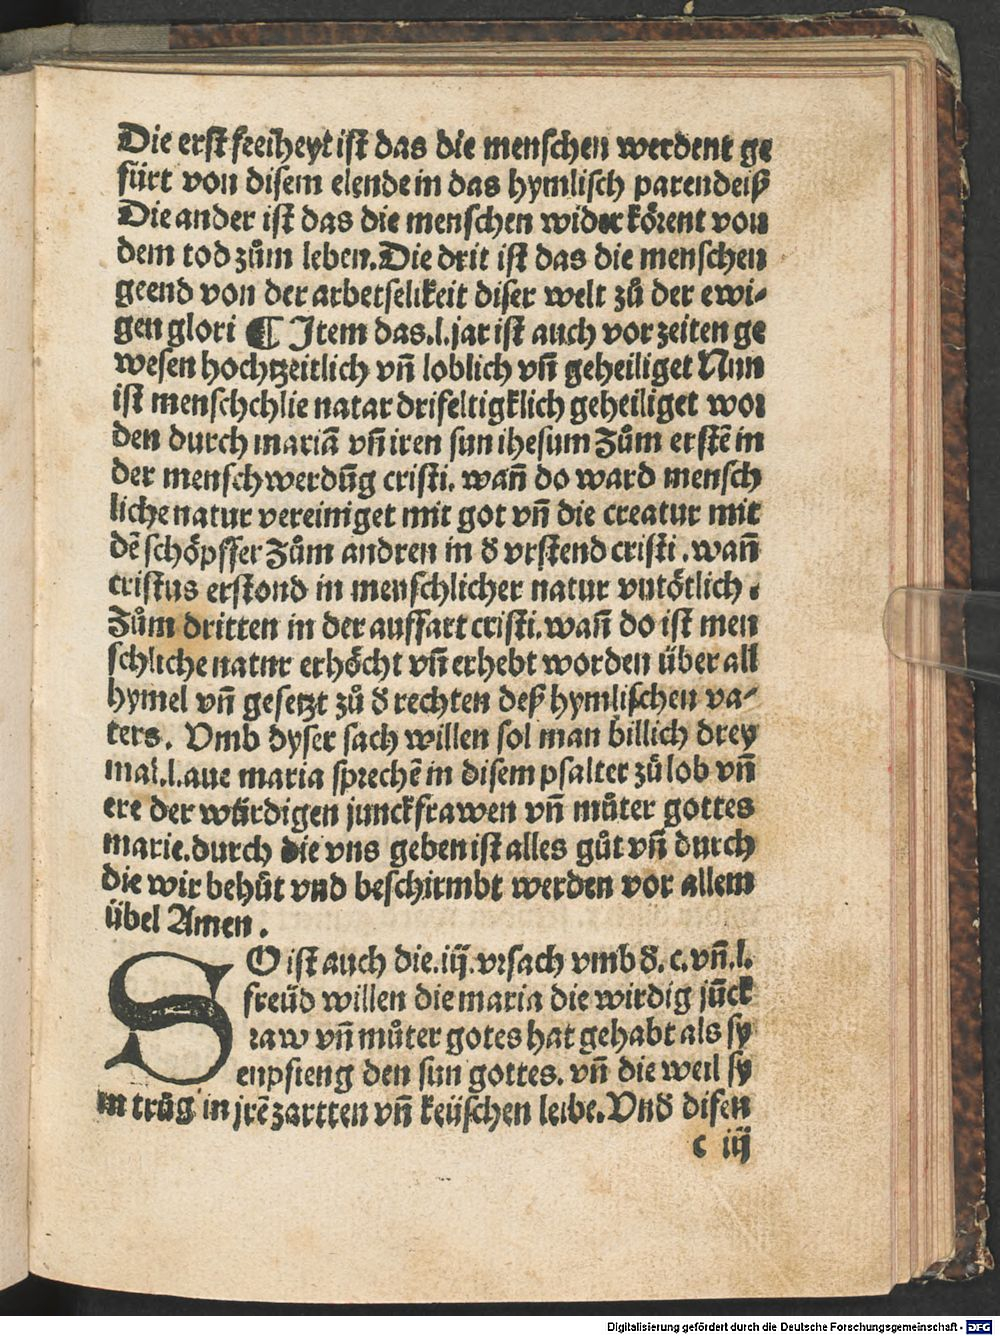 Die erſt freiheyt iſt das die menſchen werdent ge
fürt von diſem elende in das hymliſch parendeiß
Die ander iſt das die menſchen wider körent von
dem tod zům leben. Die drit iſt das die menſchen
geend von der arbetſelikeit diſer welt zů der ewi⸗
gen glori ¶ Item das .l. jar iſt auch vor zeiten ge
weſen hochtzeitlich vñ loblich vñ geheiliget Nun
iſt menſchchlie natar drifeltigklich geheiliget wor
den durch mariā vñ iren ſun iheſum Zům erſtē in
der menſchwerdūg criſti. wañ do ward menſch
liche natur vereiniget mit got vñ die creatur mit
dē ſchöpffer Zům andren in đ vrſtend criſti. wañ
criſtus erſtond in menſchlicher natur vntötlich.
Zům dritten in der auffart criſti. wañ do iſt men
ſchliche natur erhöcht vñ erhebt worden über all
hymel vñ geſetzt zů đ rechten deß hymliſchen va⸗
ters. Vmb dyſer ſach willen ſol man billich drey
mal .l. aue maria ſprechē in diſem pſalter zů lob vñ
ere der würdigen junckfrawen vñ můter gottes
marie. durch die vns geben iſt alles gůt vñ durch
die wir behüt vnd beſchirmbt werden vor allem
übel Amen.
SO iſt auch die .iij. vrſach vmb đ .c. vñ .l.
freüd willen die maria die wirdig jūck
raw vñ můter gotes hat gehabt als ſy
enpfieng den ſun gottes. vñ die weil ſy
in trůg in jrē zartten vñ keüſchen leibe. Vnd diſen
c iij
Digitalisierung gefördert durch die Deutsche Forschungsgemeinschaft - DFG